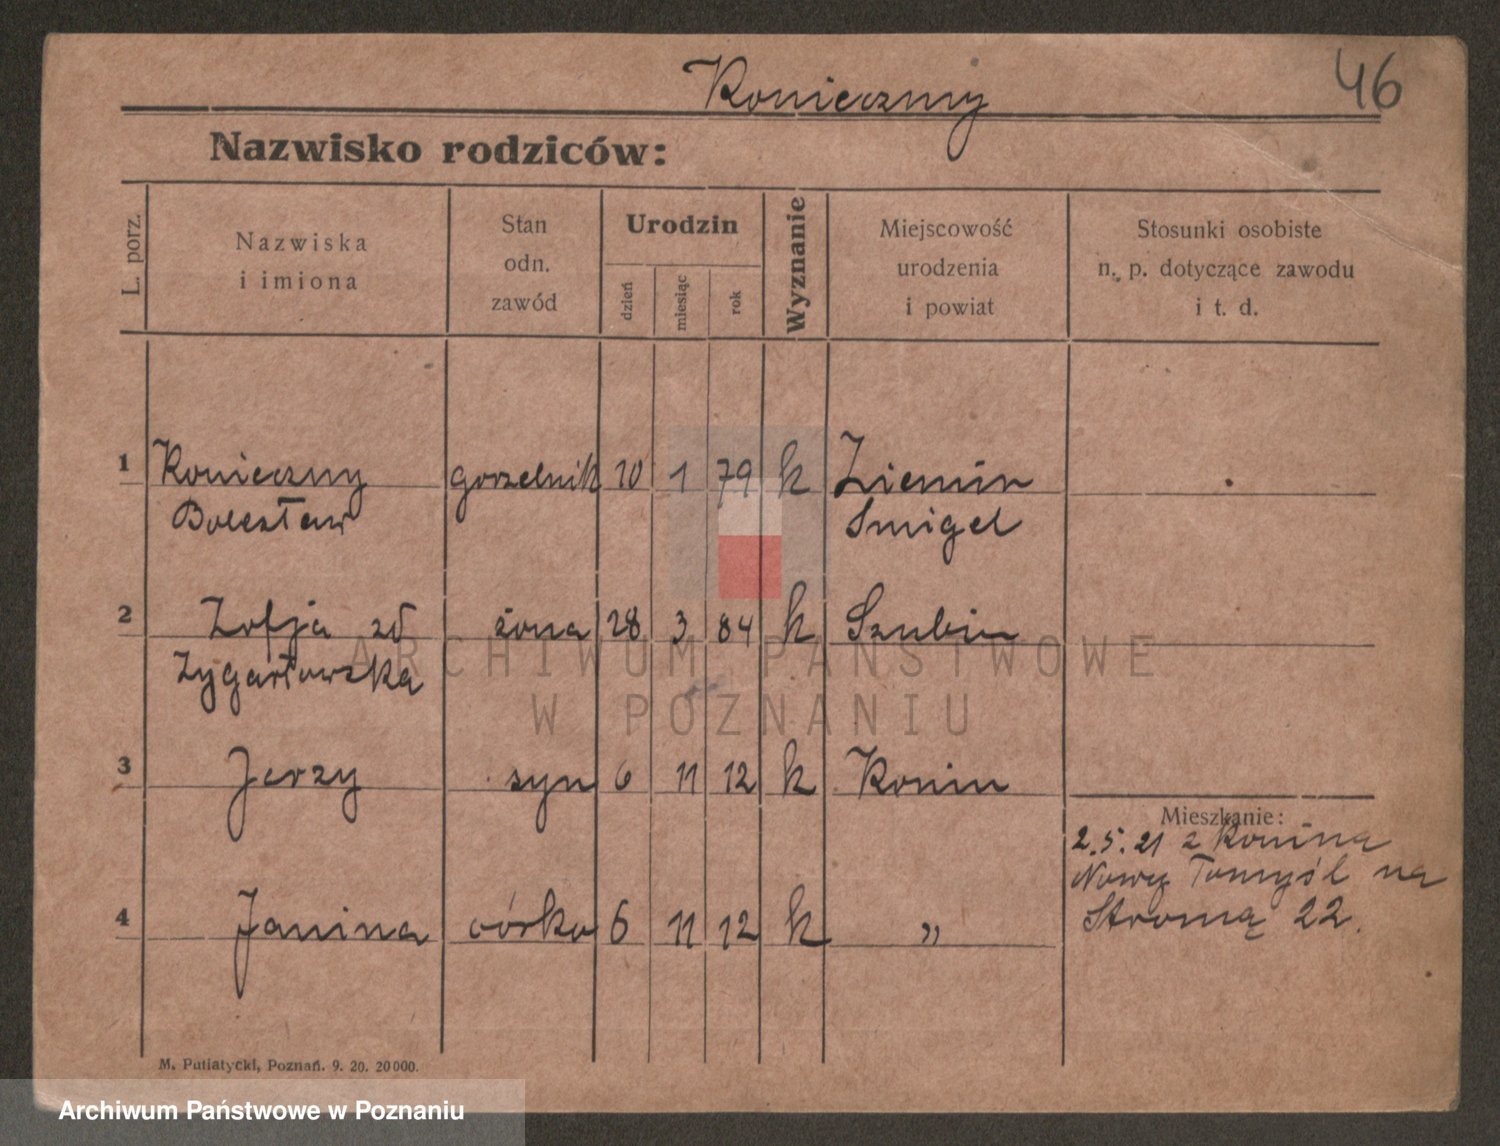 46
Konieczny
Nazwisko rodziców:
L. porz.
Nazwiska
i imiona
Stan
odn.
zawód
Urodzin
dzień
miesiąc
rok
Wyznanie
Miejscowość
urodzenia
i powiat
Stosunki osobiste
n. p. dotyczące zawodu
i t. d.
1 Konieczny gorzelnik 10 1 79 k Ziemin
Bolesław Smigel
2 Zofja żona 28 3 84 k Szubin
3 Jerzy syn 6 11 12 k Konin
Mieszkanie:
2.5.21 z Konina
Nowy Tomyśl na
4 Janina córka 6 11 12 k „
Stromą 22.
M. Putiatycki, Poznań. 9. 20. 20000.
ARCHIWUM PAŃSTWOWE
W POZNANIU
Archiwum Państwowe w Poznaniu